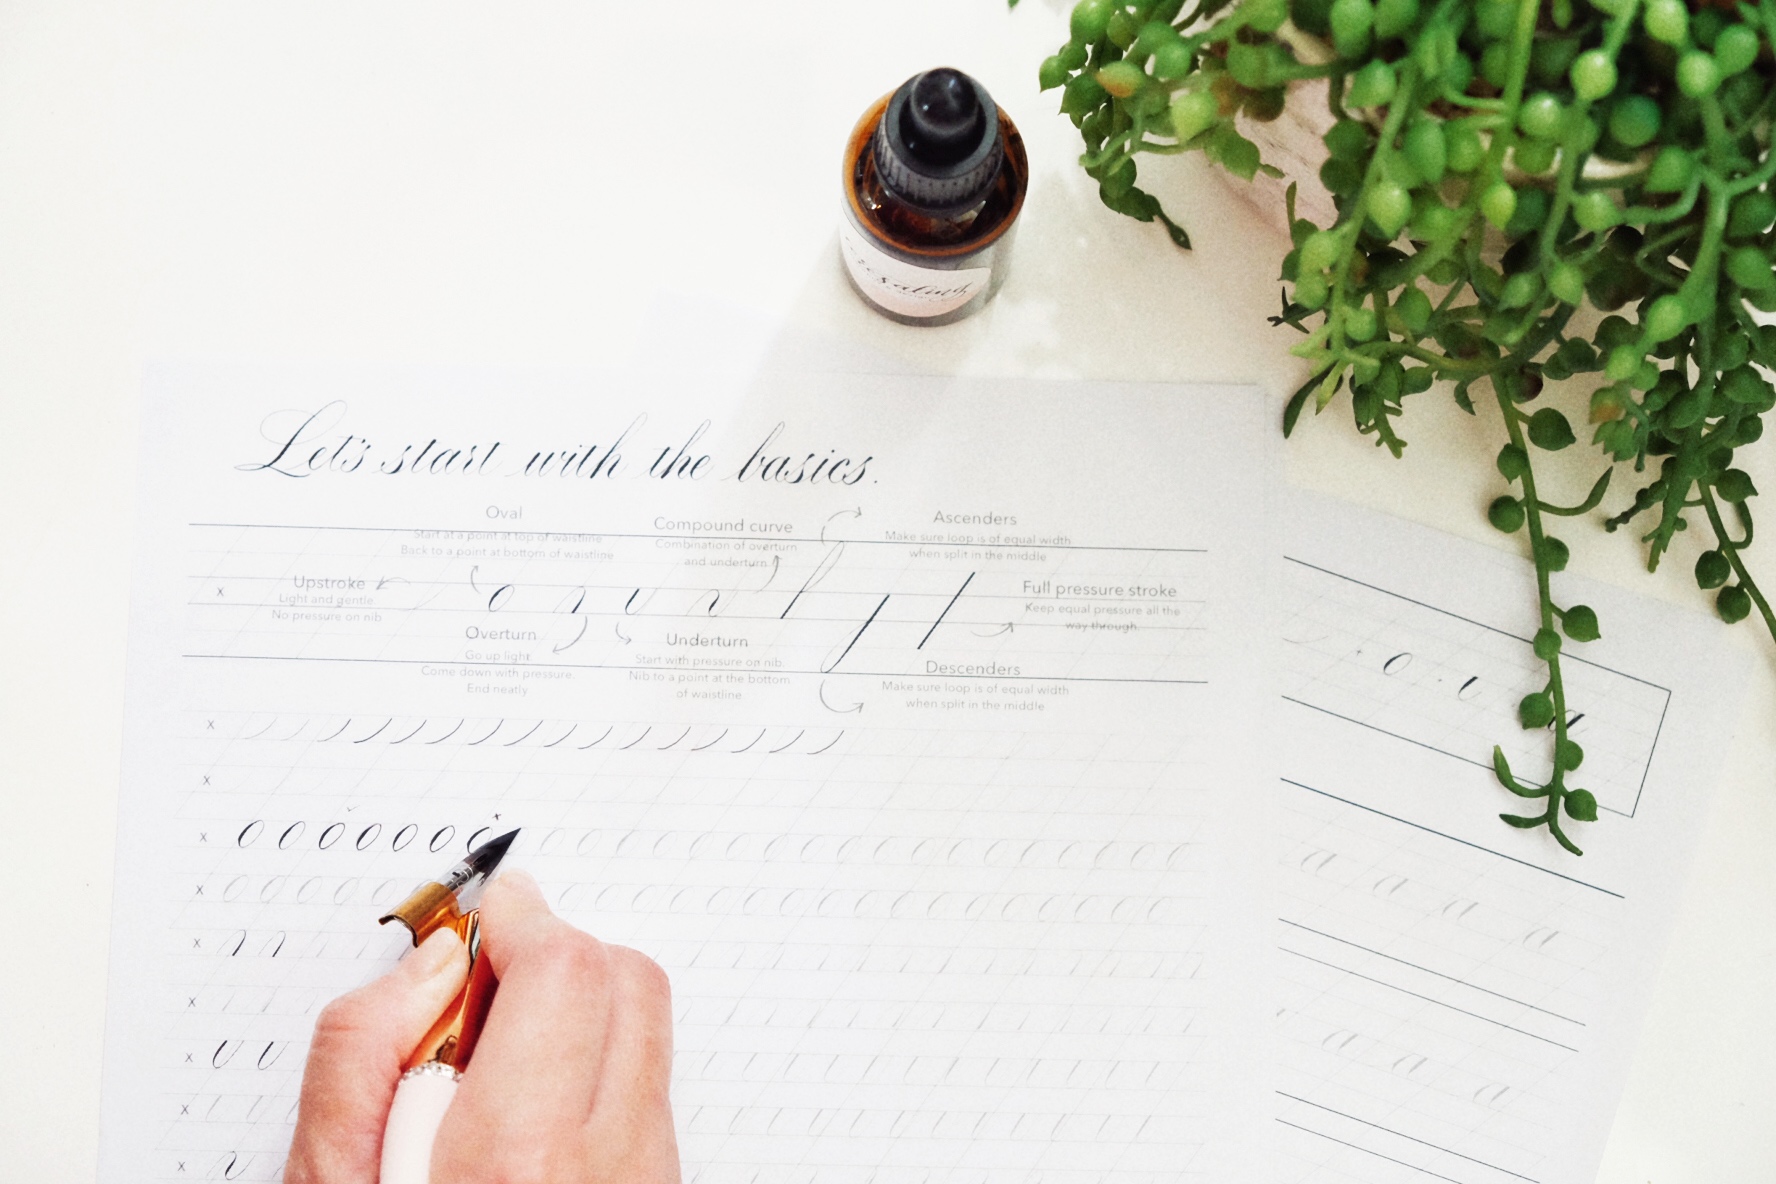 Let's start with the basics.
Oval
Start at a point at top of waistline
Back to a point at bottom of waistline
Compound curve
Combination of overturn
and underturn
Ascenders
Make sure loop is of equal width
when split in the middle
Upstroke
Light and gentle.
No pressure on nib
x
Full pressure stroke
Keep equal pressure all the
way through.
Overturn
Go up light
Come down with pressure.
End neatly
Underturn
Start with pressure on nib.
Nib to a point at the bottom
of waistline.
Descenders
Make sure loop is of equal width
when split in the middle
x
x
x
x
x
x
x
x
x
o
a a a a
a a a